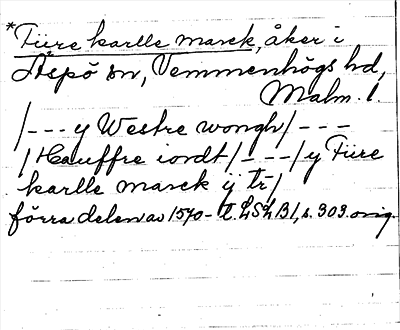 *Fiire karlle marck, åker i
Äspö sn, Vemmenhögs hd,
Malm. l.
/--- y Westre wongh/ ---
/Hauffre iordt/ --- /y Fiire
karlle marck ÿ tr/
förra delen av 1570-t. LSLB1, s. 303. orig.